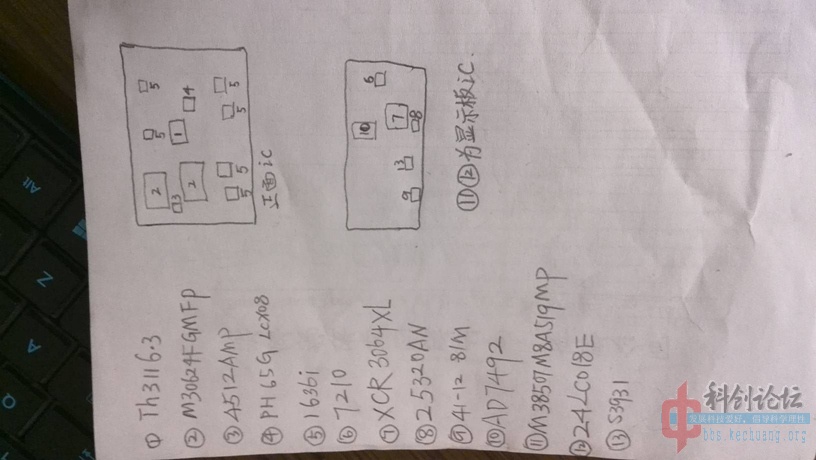 ① Th3116.3
② M30624FGMFP
③ A512AMP
④ PH65G LCX08
⑤ 1636i
⑥ 7210
⑦ XCR3064XL
⑧ 25320AN
⑨ 41-12 81M
⑩ AD7492
⑪ M38507M8A519MP
⑫ 24LC018E
⑬ S3931
正面ic
5
5
4
1
5
5
2
3
2
5
5
6
10
7
8
3
9
⑪⑫为显示板iC.
Alt
Z
A
Q
科创论坛
bbs.kechuang.org